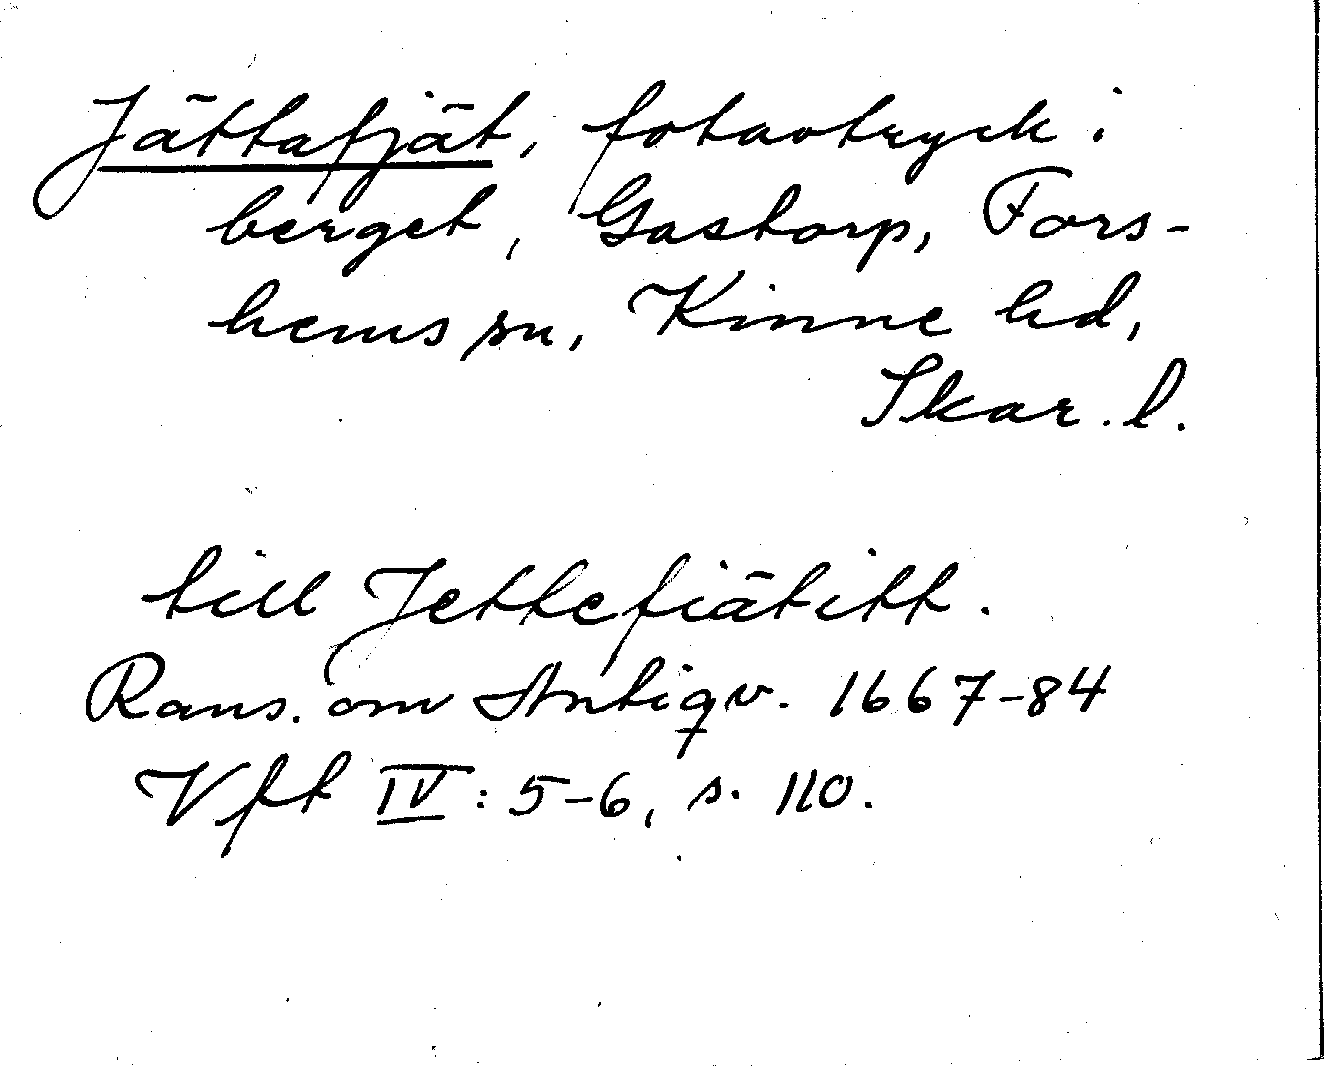 Jättafjät, fotavtryck i
berget, Gastorp, Fors-
hems sn, Kinne hd,
Skar. l.
till Jettefiätitt.
Rans. om Antiqv. 1667-84
Vft IV: 5-6, s. 110.